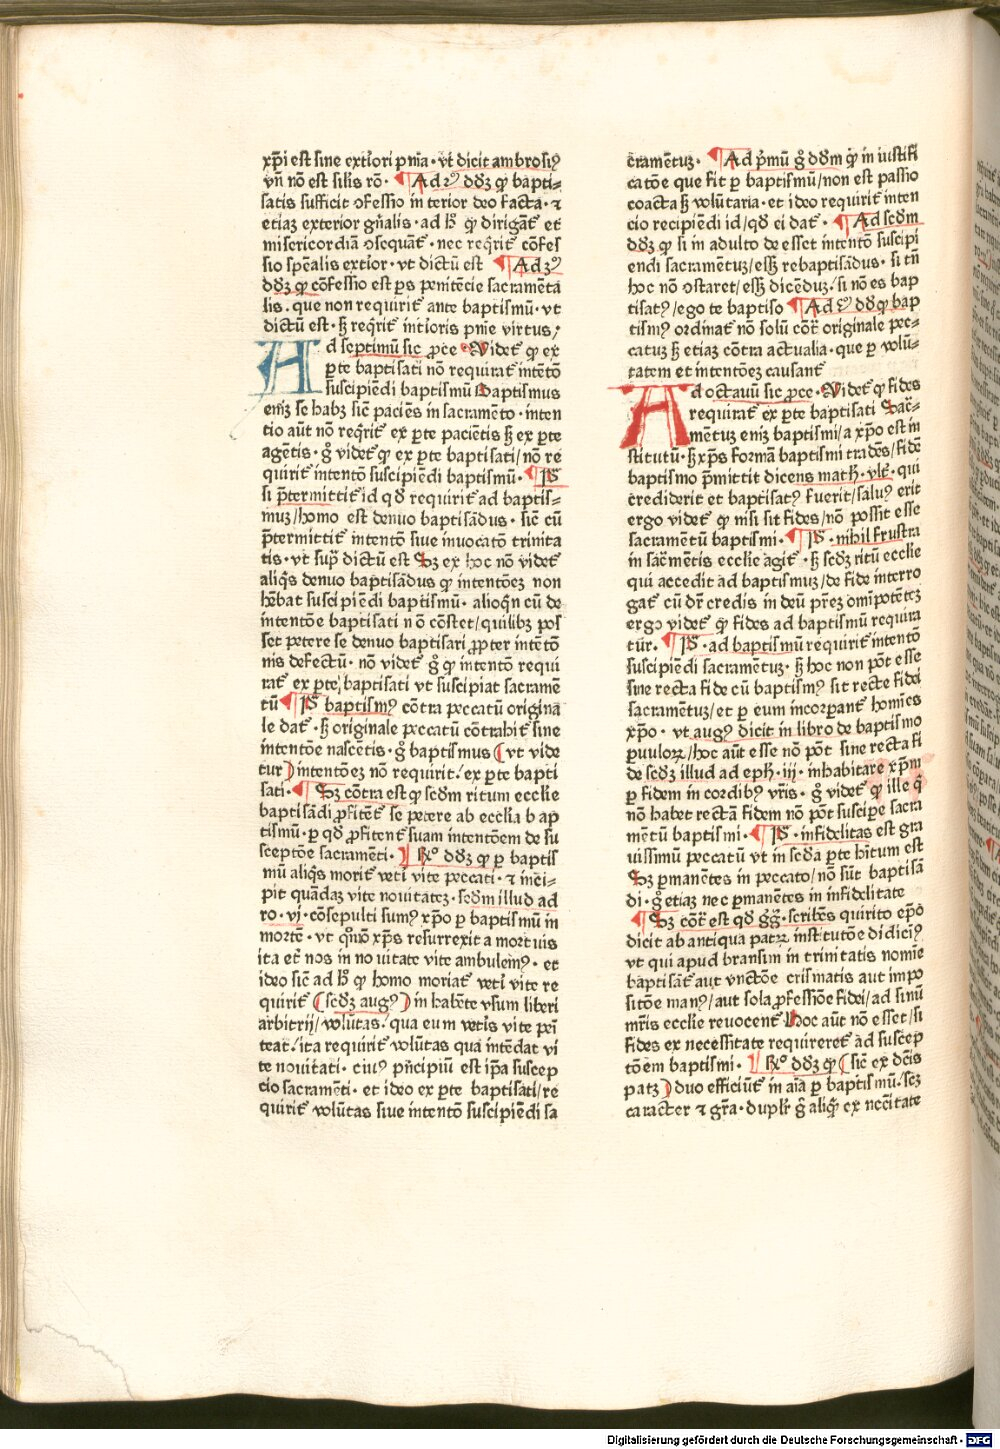 xp̄i est sine exti̾ori pn̄ia · vt dicit ambrosiꝰ
vn̄ nō est silis rō · ¶ Ad 2ꝰ dd̄ꝫ ꝙ bapti-
satis sufficit ↄfessio interior deo facta · ⁊
etiaꝫ exterior gn̄alis · ad h̄ ꝙ dirigat̄ et
misericordiā ↄsequāt̄ · nec req̄rit̄ cōfes
sio sp̄ealis exti̾or · vt dictū est ¶ Ad 3ꝰ
dd̄ꝫ ꝙ cōfessio est ꝑs penitēcie sacramēta
lis · que non requirit̄ ante baptismū · vt
dictū est · ꝫ req̄rit̄ inti̾oris pn̄ie virtus ;
Ad septimū sic ꝓce · Videt̄ ꝙ ex
ꝑte baptisati nō requirat̄ intētō
suscipiēdi baptismū Baptismus
eniꝫ se habꝫ sic̄ paciēs in sacramēto · inten
tio aūt nō req̄rit̄ ex ꝑte paciētis ꝫ ex ꝑte
agētis · g̊ videt̄ ꝙ ex ꝑte baptisati/nō re
quirit̄ intentō suscipiēdi baptismū · ¶ P̄S
si p̄termittit̄ id qd̄ requirit̄ ad baptis-
muꝫ/homo est denuo baptisādus · sic̄ cū
p̄termittit̄ intentō siue inuocatō trinita
tis · vt sup̄ dictū est Sꝫ ex hoc nō videt̄
aliq̄s denuo baptisādus ꝙ intentōeꝫ non
hēbat suscipiēdi baptismū · alioqn̄ cū de
intentōe baptisati nō cōstet/quilibꝫ pos
set petere se denuo baptisari ꝓpter intētō
nis defectū · nō videt̄ g̊ ꝙ intentō requi
rat̄ ex ꝑte baptisati vt suscipiat sacramē
tū ¶ P̄S baptismꝰ cōtra peccatū origina
le dat̄ · ꝫ originale peccatū cōtrahit̄ sine
intentōe nascētis · g̊ baptismus ( vt vide
tur ) intentōeꝫ nō requirit̄ ex ꝑte bapti
sati · ¶ Sꝫ cōtra est ꝙ scd̄m ritum ecclie
baptisādi ꝓfitēt̄ se petere ab ecclia bap
tismū · ꝑ qd̄ ꝓfitent̄ suam intentōem de su
sceptōe sacramēti · ¶ Rꝰ dd̄ꝫ ꝙ ꝑ baptis
mū aliq̄s morit̄ vet̄i vite peccati · ⁊ incī-
pit quādaꝫ vite nouitateꝫ · scd̄m illud ad
ro · vj · cōsepulti sumꝰ xp̄o ꝑ baptismū in
mortē · vt qūo xp̄s resurrexit a mortuis
ita et̄ nos in nouitate vite ambulemꝰ · et
ideo sic̄ ad h̄ ꝙ homo moriat̄ vet̄i vite re
quirit̄ ( scd̄ꝫ augꝰ ) in habēte vsum liberi
arbitrij/volūtas · qua eum vet̄is vite pei̅
teat · ita requirit̄ volūtas qua intēdat vi
te nouitati · eiuꝰ pn̄cipiū est ip̄a suscep
cio sacramēti · et ideo ex ꝑte baptisati/re
quirit̄ volūtas siue intentō suscipiēdi sa
cramētuꝫ · ¶ Ad p̄mū g̊ dd̄m ꝙ in iustifi
catōe que fit ꝑ baptismū/non est passio
coacta ꝫ volūtaria · et ideo requirit̄ inten
cio recipiēdi id/qd̄ ei dat̄ · ¶ Ad scd̄m
dd̄ꝫ ꝙ si in adulto deesset intentō suscipi
endi sacramētuꝫ/eēꝫ rebaptisādus · si tn̄
hoc nō ↄstaret/eēꝫ dicēduꝫ · si nō es bap
tisatꝰ/ego te baptiso ¶ Ad 3ꝰ dd̄ꝙ bap
tismꝰ ordinat̄ nō solū cōt̄ originale pec-
catuꝫ ꝫ etiaꝫ cōtra actualia · que ꝑ volū-
tatem et intentōeꝫ causant̄
Ad octauū sic ꝓce · Videt̄ ꝙ fides
requirat̄ ex ꝑte baptisati Sac̄-
mētuꝫ eniꝫ baptismi/a xp̄o est in
stitutū · ꝫ xp̄s formā baptismi tradēs/fidē
baptismo p̄mittit dicens math̄ · vlt̄ · qui
crediderit et baptisatꝰ fuerit/saluꝰ erit
ergo videt̄ ꝙ nisi sit fides/nō possit esse
sacramētū baptismi · ¶ P̄S · nihil frustra
in sac̄mētis ecclie agit̄ · ꝫ scd̄ꝫ ritū ecclie
qui accedit ad baptismuꝫ/de fide interro
gat̄ cū dr̄ credis in deū pr̄eꝫ omīpotēteꝫ
ergo videt̄ ꝙ fides ad baptismū requira
tur · ¶ P̄S · ad baptismū requirit̄ intentō
suscipiēdi sacramētuꝫ · ꝫ hoc non pōt esse
sine recta fide cū baptismꝰ sit recte fidei
sacramētuꝫ/et ꝑ eum incorꝑant̄ homīes
xp̄o · vt augꝰ dicit in libro de baptismo
ꝑuuloꝝ/hoc aūt esse nō pōt sine recta fi
de scd̄ꝫ illud ad eph̄ · iij · inhabitare xp̄m
ꝑ fidem in cordibꝰ vr̄is · g̊ videt̄ ꝙ ille q̄
nō habet rectā fidem nō pōt suscipe sacra
mētū baptismi · ¶ P̄S · infidelitas est gra
uissimū peccatū vt in scd̄a ꝑte hītum est
Sꝫ ꝑmanētes in peccato/nō sūt baptisā
di · g̊ etiaꝫ nec ꝑmanētes in infidelitate
¶ Sꝫ cōt̄ est qd̄ g̊g̊ · scribēs quirito ep̄o
dicit ab antiqua patꝝ institutōe didiciꝰ
vt qui apud hransim in trinitatis nomīe
baptisāt̄ aut vnctōe crismatis aut impo
sitōe manꝰ/aut sola ꝓfessiōe fidei/ad sinū
mr̄is ecclie reuocent̄ Hoc aūt nō esset/si
fides ex necessitate requireret̄ ad suscep
tōem baptismi · ¶ Rꝰ dd̄ꝫ ꝙ ( sic̄ ex dc̄is
patꝫ ) duo efficiūt̄ in aīa ꝑ baptismū · scꝫ
caracter ⁊ gr̄a · duplr̄ g̊ aliq̄ ex nēcitate
Digitalisierung gefördert durch die Deutsche Forschungsgemeinschaft - DFG